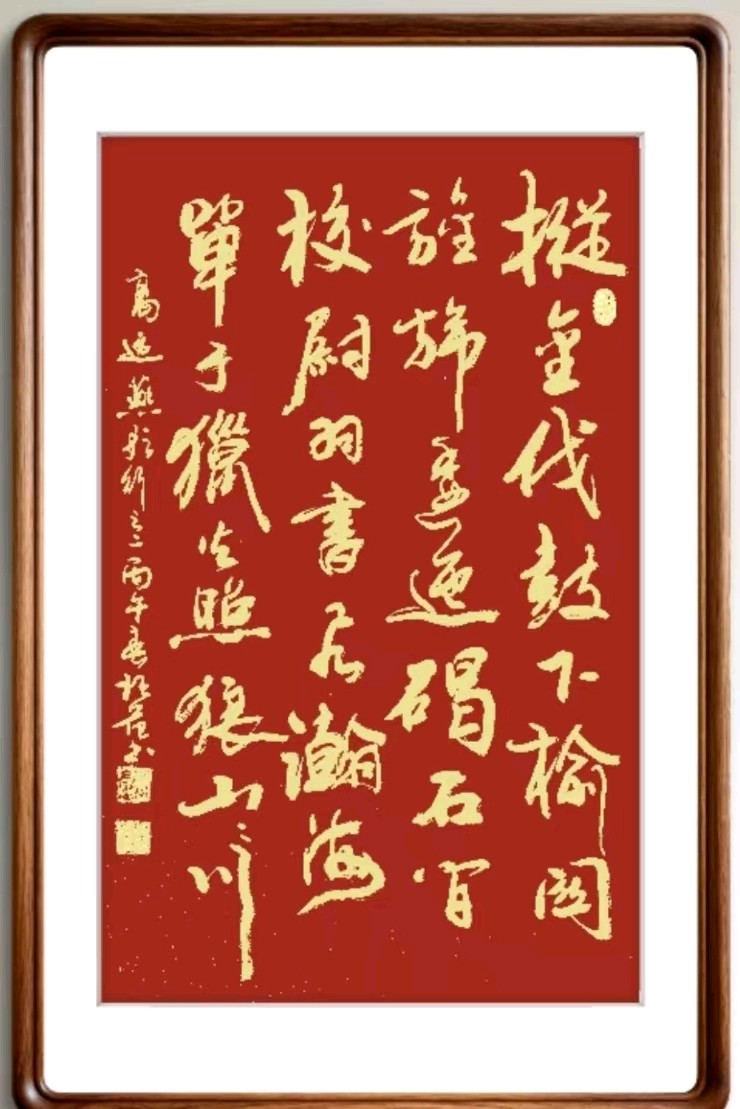 摐金伐鼓下榆関
旌旆逶迤碣石間
校尉羽書飛瀚海
單于獵火照狼山川
高適燕歌行之二丙午春書